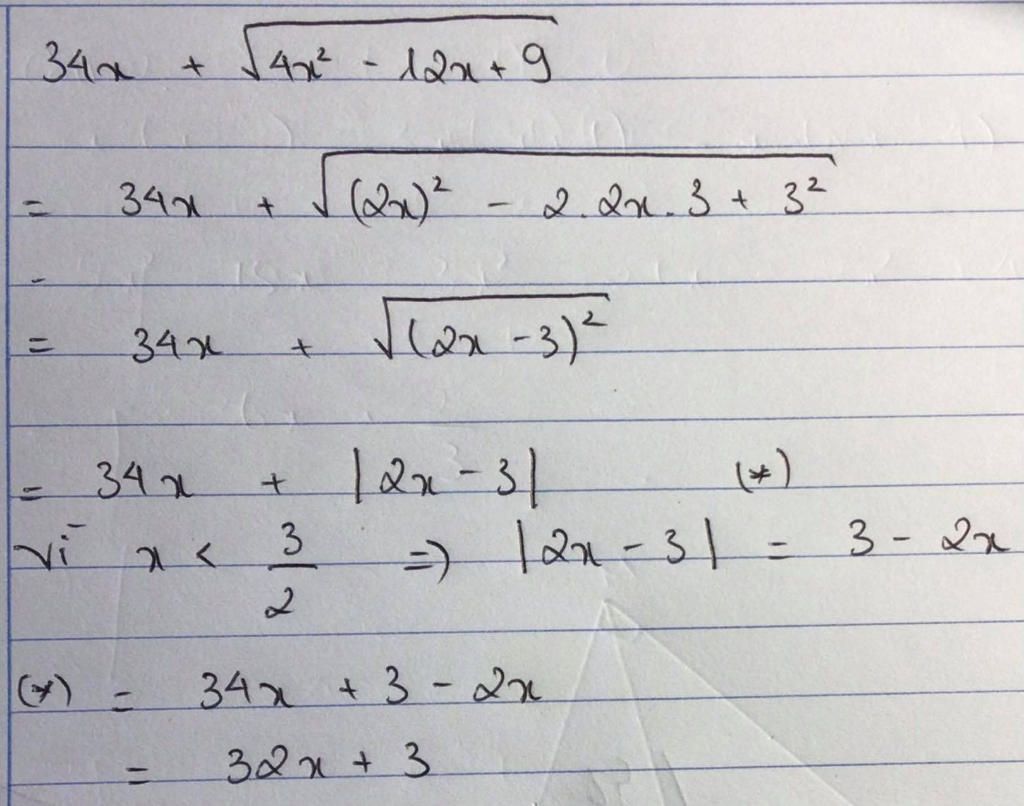 34x + √(4x² - 12x + 9)
= 34x + √((2x)² - 2.2x.3 + 3²)
=
= 34x + √((2x - 3)²)
= 34x + |2x - 3| (*)
Vì x < 3/2 => |2x - 3| = 3 - 2x
(*) = 34x + 3 - 2x
= 32x + 3